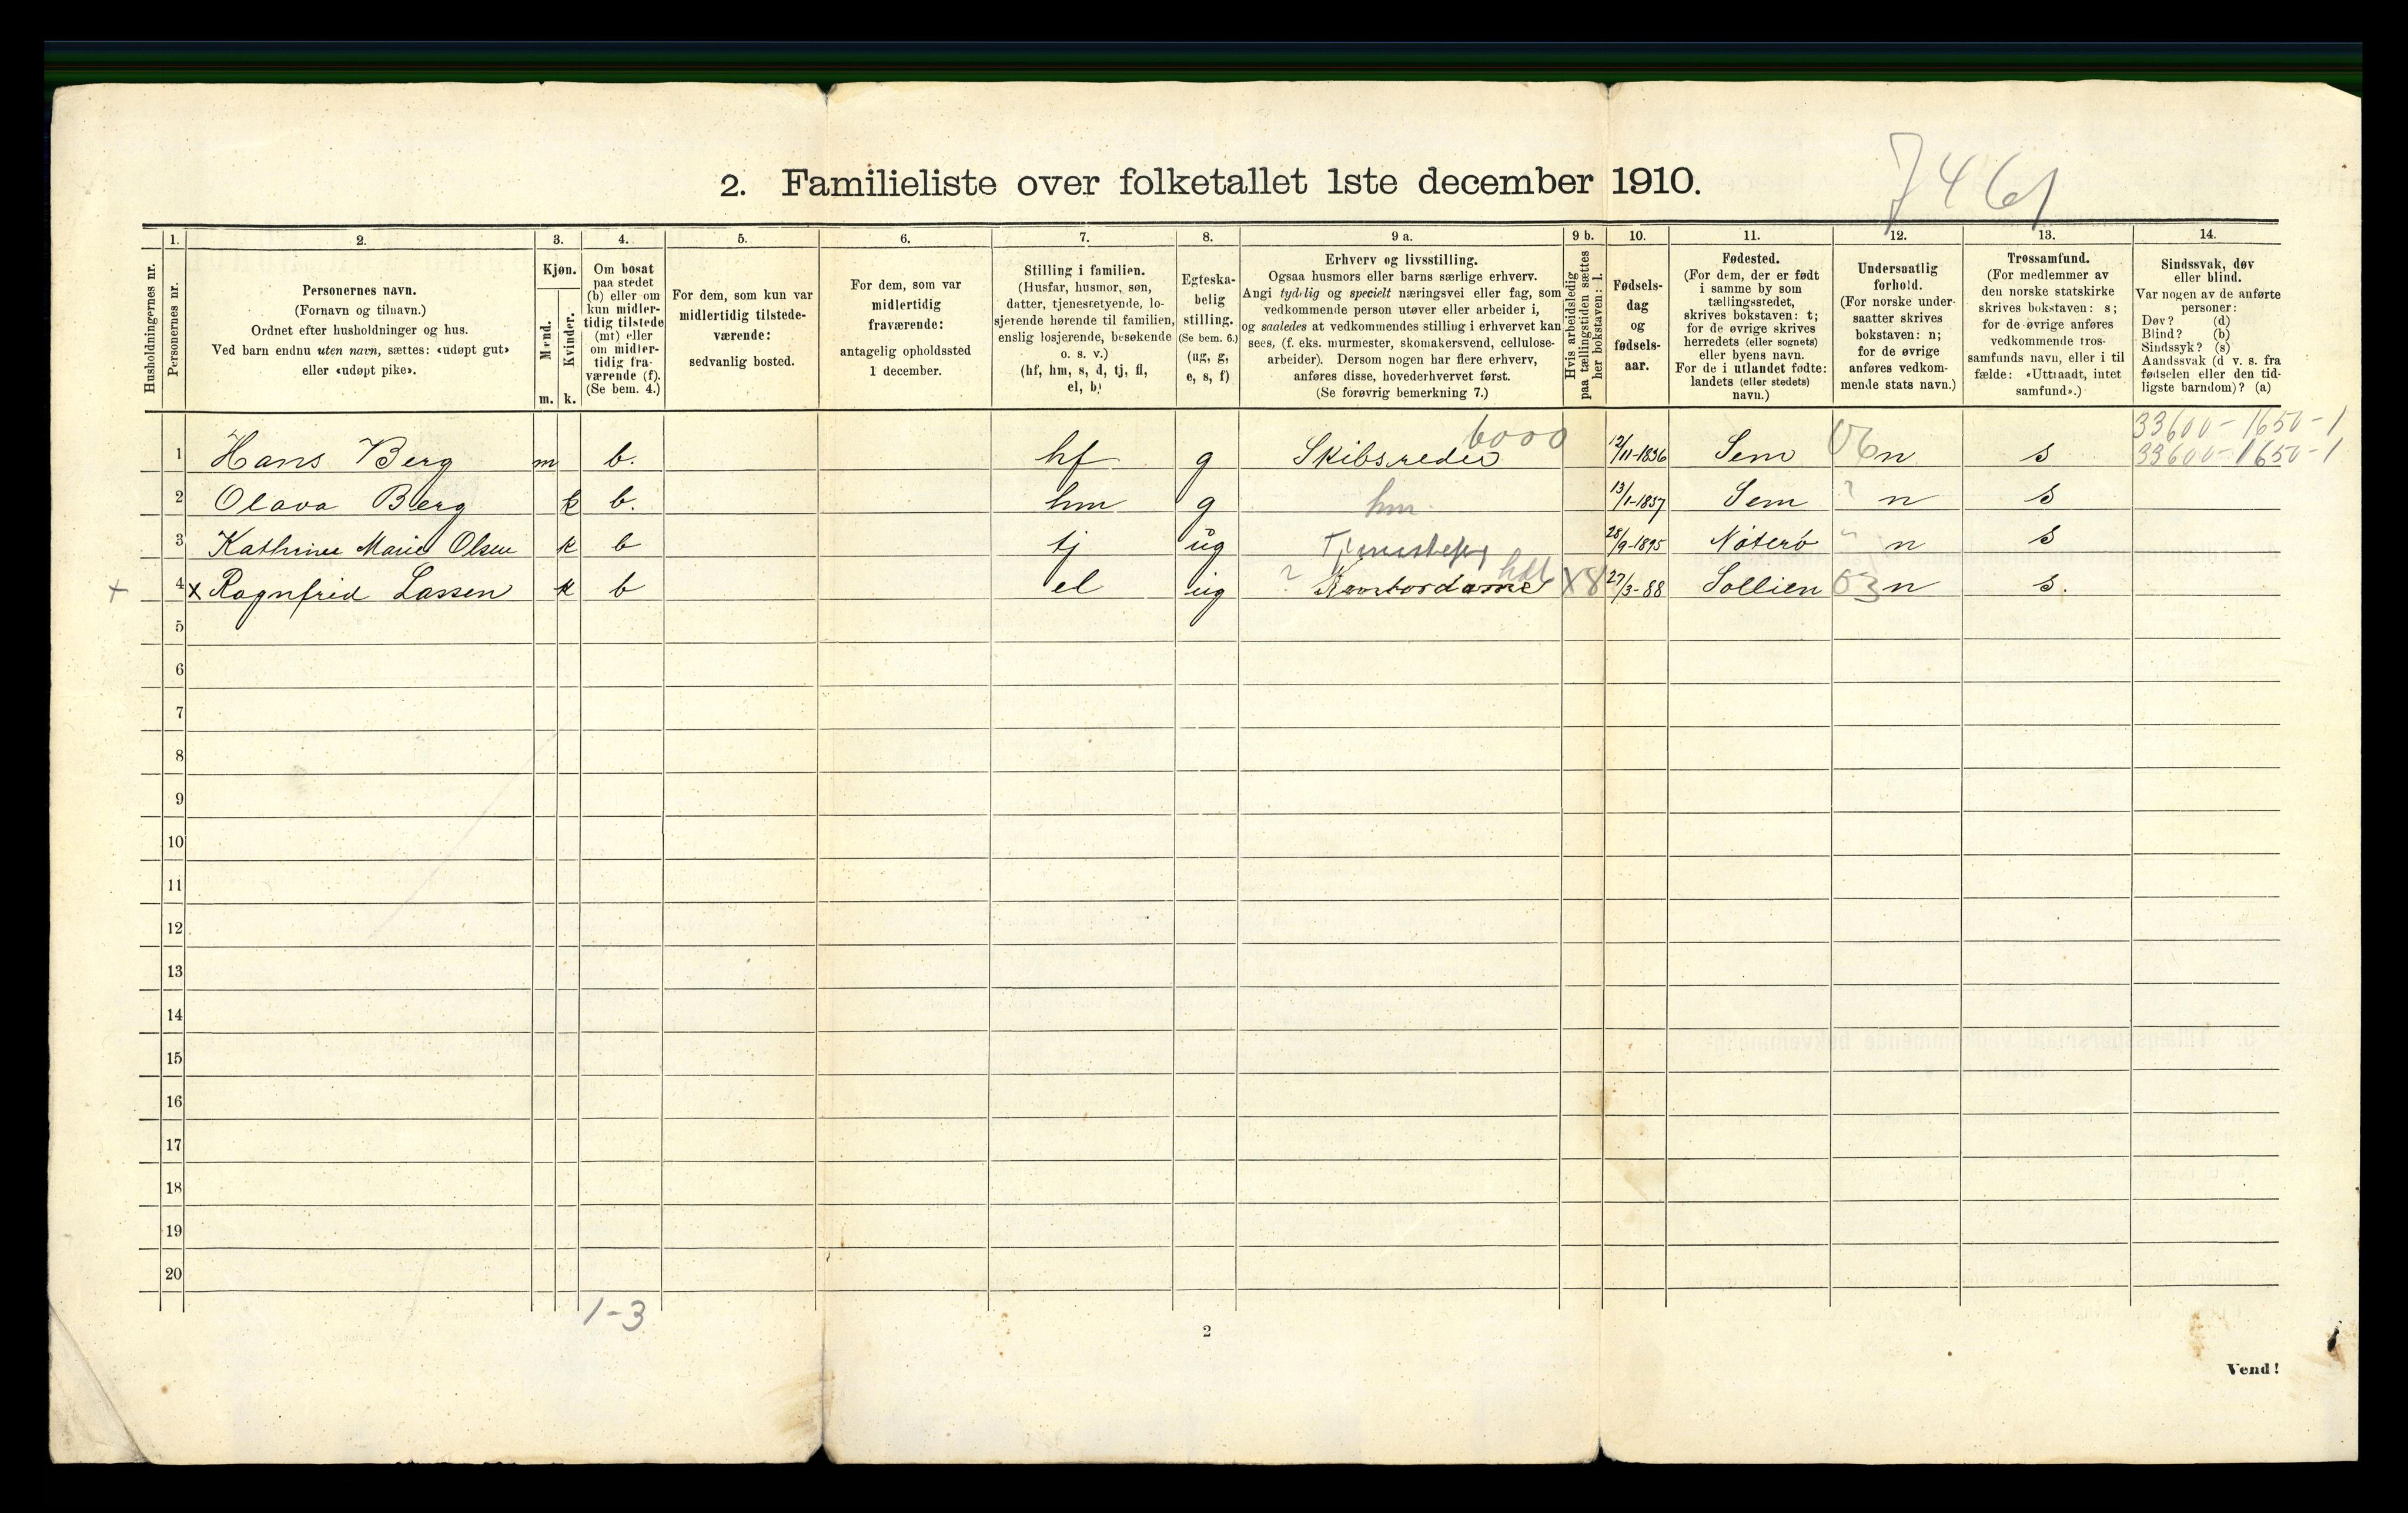 7461
2. Familieliste over folketallet 1ste december 1910.
Husholdningernes nr.
1.
Personernes nr.
2.
Personernes navn.
(Fornavn og tilnavn.)
Ordnet efter husholdninger og hus.
Ved barn endnu uten navn, sættes: «udøpt gut»
eller «udøpt pike».
3.
Kjøn.
Mænd.
Kvinder.
m. k.
4.
Om bosat
paa stedet
(b) eller om
kun midler-
tidig tilstede
(mt) eller
om midler-
tidig fra-
værende (f).
(Se bem. 4.)
5.
For dem, som kun var
midlertidig tilstede-
værende:
sedvanlig bosted.
6.
For dem, som var
midlertidig
fraværende:
antagelig opholdssted
1 december.
7.
Stilling i familien.
(Husfar, husmor, søn,
datter, tjenestetyende, lo-
sjerende hørende til familien,
enslig losjerende, besøkende
o. s. v.)
(hf, hm, s, d, tj, fl,
el, b)
8.
Egteska-
belig
stilling.
(Se bem. 6.)
(ug, g,
e, s, f)
9 a.
Erhverv og livsstilling.
Ogsaa husmors eller barns særlige erhverv.
Angi tydelig og specielt næringsvei eller fag, som
vedkommende person utøver eller arbeider i,
og saaledes at vedkommendes stilling i erhvervet kan
sees, (f. eks. murmester, skomakersvend, cellulose-
arbeider). Dersom nogen har flere erhverv,
anføres disse, hovederhvervet først.
(Se forøvrig bemerkning 7.)
9 b.
Hvis arbeidsledig
paa tællingstiden sættes
her bokstaven: l.
10.
Fødsels-
dag
og
fødsels-
aar.
11.
Fødested.
(For dem, der er født
i samme by som
tællingsstedet,
skrives bokstaven: t;
for de øvrige skrives
herredets (eller sognets)
eller byens navn.
For de i utlandet fødte:
landets (eller stedets)
navn.)
12.
Undersaatlig
forhold.
(For norske under-
saatter skrives
bokstaven: n;
for de øvrige
anføres vedkom-
mende stats navn.)
13.
Trossamfund.
(For medlemmer av
den norske statskirke
skrives bokstaven: s;
for de øvrige anføres
vedkommende tros-
samfunds navn, eller i til-
fælde: «Uttraadt, intet
samfund».)
14.
Sindssvak, døv
eller blind.
Var nogen av de anførte
personer:
Døv? (d)
Blind? (b)
Sindssyk? (s)
Aandssvak (d v. s. fra
fødselen eller den tid-
ligste barndom)? (a)
33600-1650-1
1 Hans Berg m b. hf g Skibsreder 6000 12/11-1836 Sem 06 n s 33600-1650-1
2 Olava Berg k b. hm g hm. 13/1-1857 Sem " n s
3 Kathrine Marie Olsen k b tj ug Tjenestepg 28/9-1895 Nøterø " n s
+ 4 x Ragnfrid Lassen k b el ug ? Kontordame hdl X8 27/3-88 Sollien 03 n s.
5
6
7
8
9
10
11
12
13
14
15
16
17
18
19
20
1-3
2
Vend!